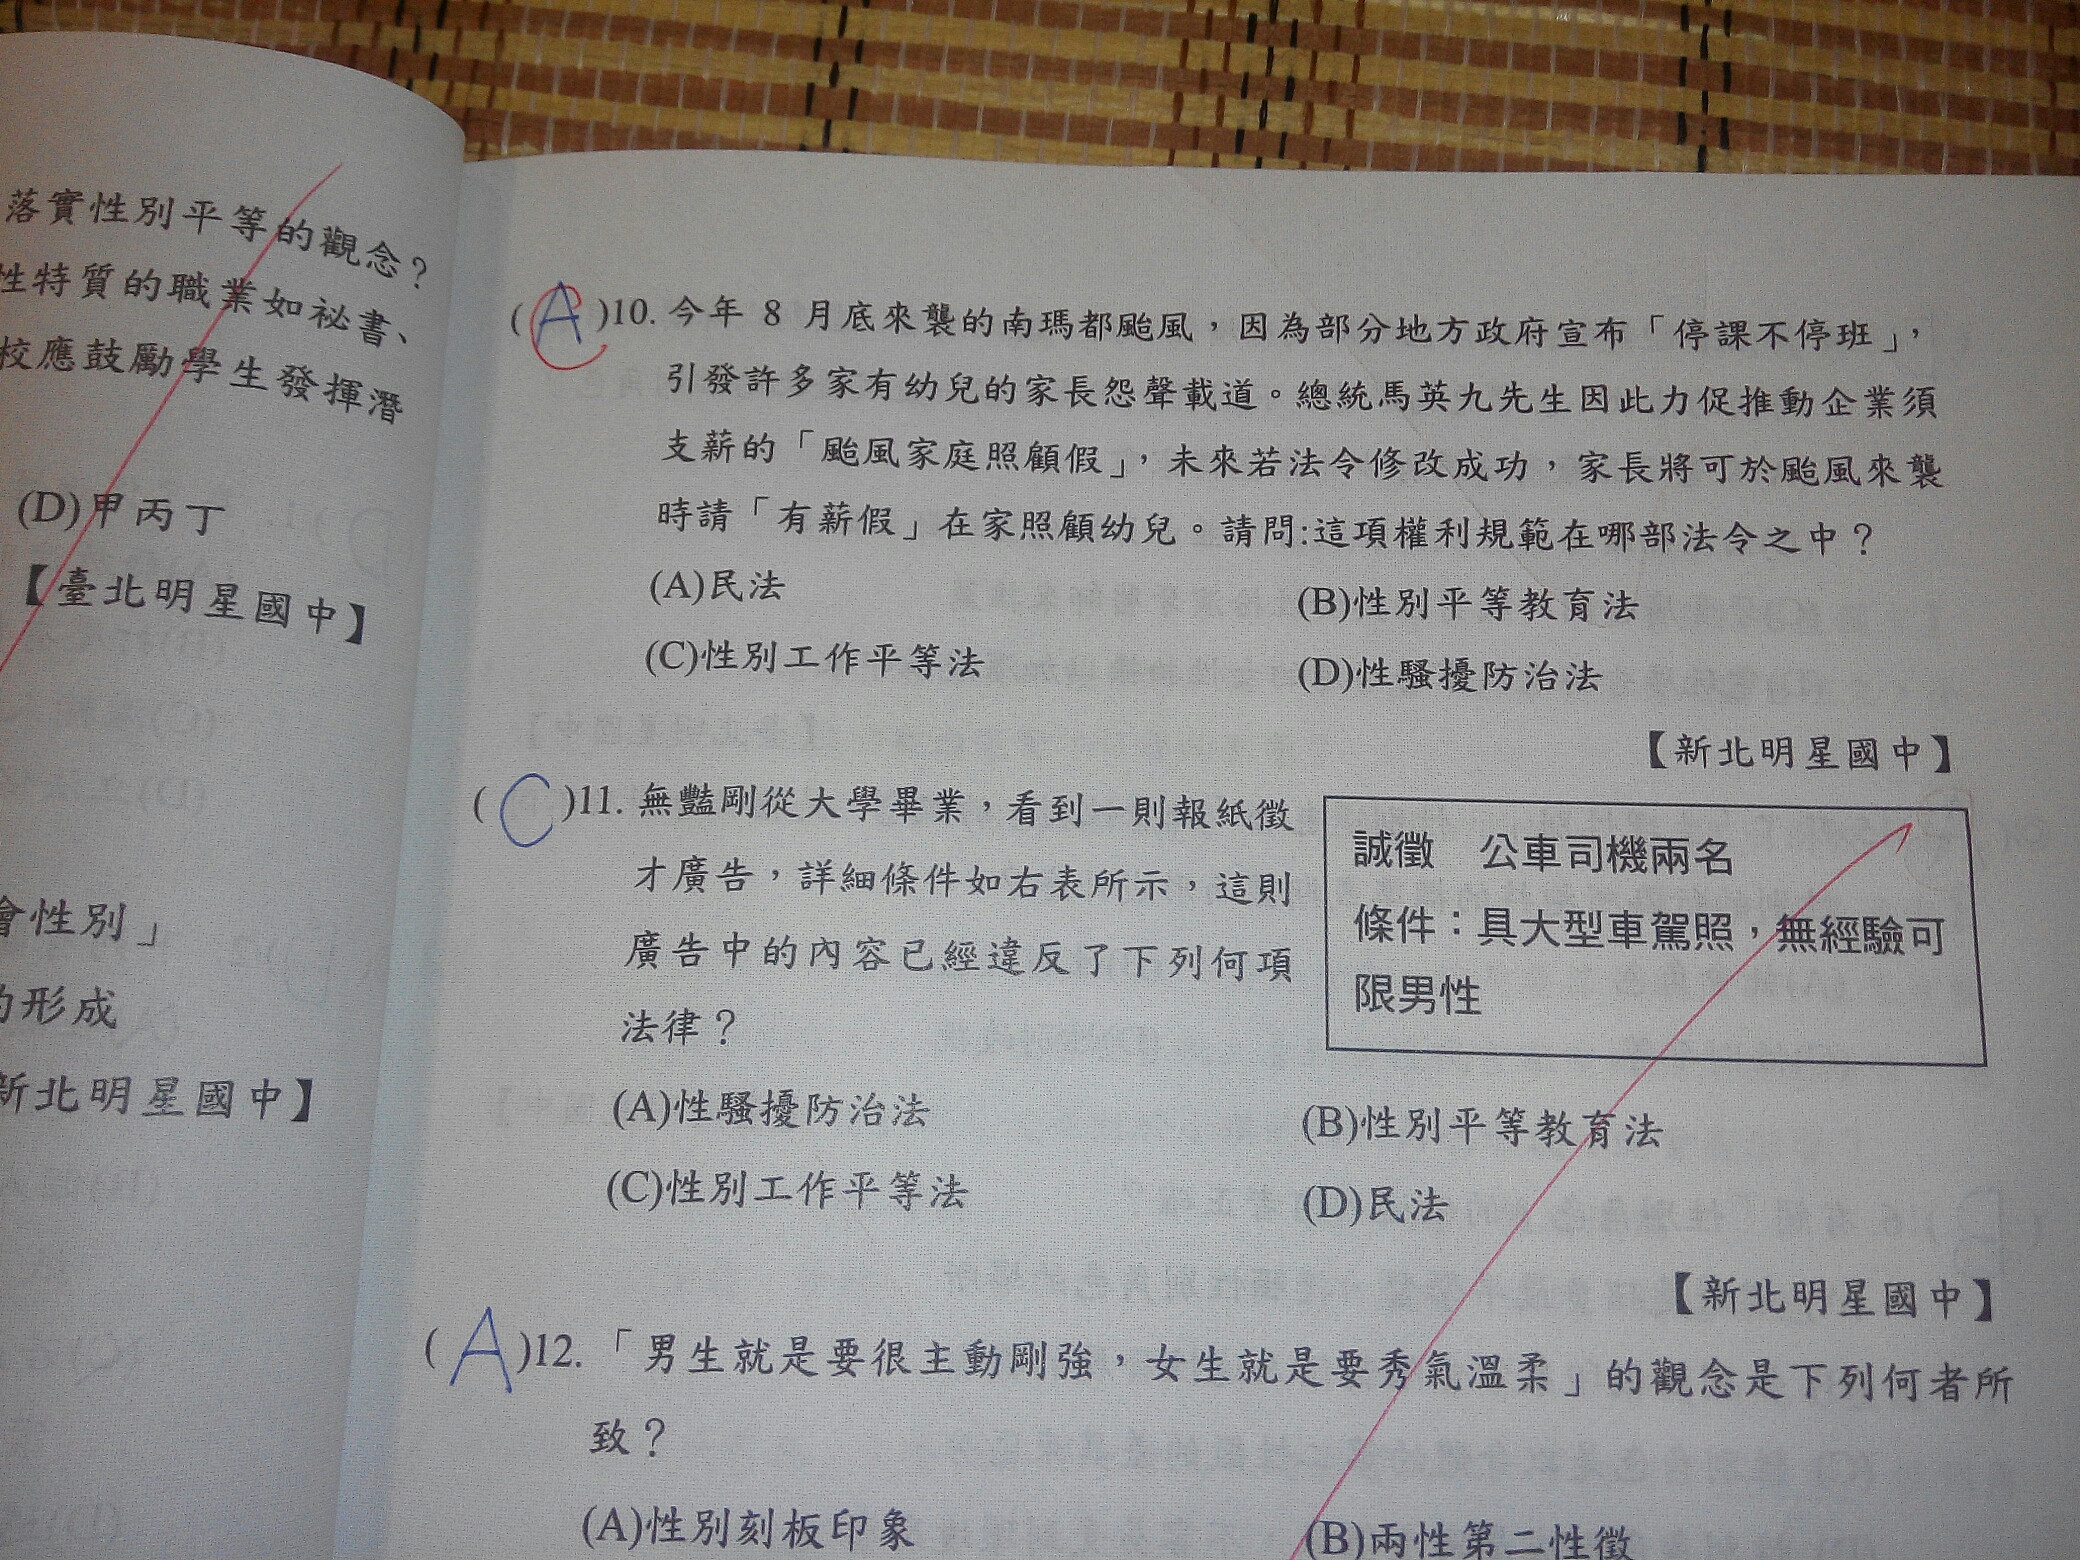 落實性別平等的觀念？
性特質的職業如祕書、
校應鼓勵學生發揮潛
(D)甲丙丁
【臺北明星國中】
會性別」
的形成
新北明星國中】
(A)10. 今年 8 月底來襲的南瑪都颱風，因為部分地方政府宣布「停課不停班」，
引發許多家有幼兒的家長怨聲載道。總統馬英九先生因此力促推動企業須
支薪的「颱風家庭照顧假」，未來若法令修改成功，家長將可於颱風來襲
時請「有薪假」在家照顧幼兒。請問:這項權利規範在哪部法令之中？
(A)民法 (B)性別平等教育法
(C)性別工作平等法 (D)性騷擾防治法
【新北明星國中】
(C)11. 無豔剛從大學畢業，看到一則報紙徵
才廣告，詳細條件如右表所示，這則
廣告中的內容已經違反了下列何項
法律？
誠徵 公車司機兩名
條件：具大型車駕照，無經驗可
限男性
(A)性騷擾防治法 (B)性別平等教育法
(C)性別工作平等法 (D)民法
【新北明星國中】
(A)12. 「男生就是要很主動剛強，女生就是要秀氣溫柔」的觀念是下列何者所
致？
(A)性別刻板印象 (B)兩性第二性徵